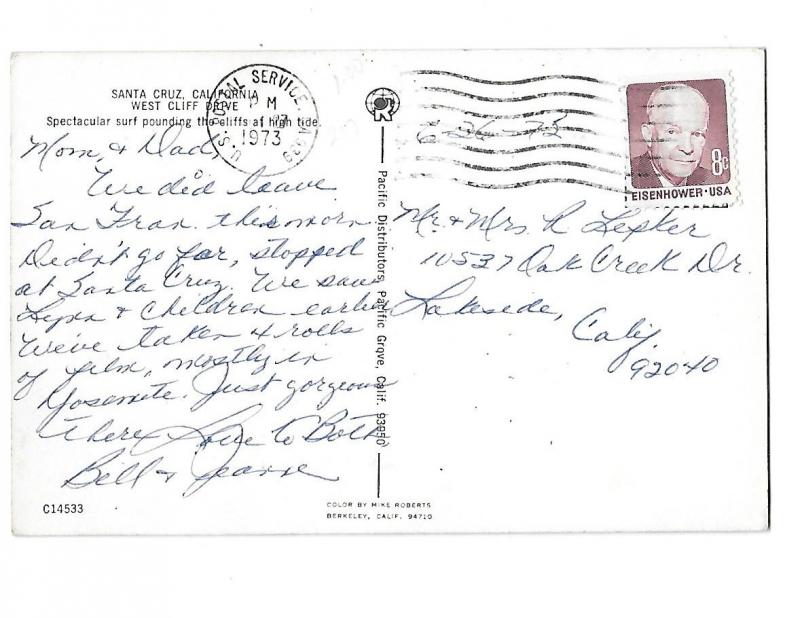 SANTA CRUZ, CALIFORNIA
WEST CLIFF DRIVE
Spectacular surf pounding the cliffs at high tide.
U.S. POSTAL SERVICE
PM
1973
Mom, & Dad
We did leave
San Fran. this morn
Didn't go far, stopped
at Santa Cruz. We saw
Lynn & Children earlier
We've taken 4 rolls
of film, mostly in
Yosemite. Just gorgeous
there Love to Both
Bill & Jeanne
C14533
Pacific Distributors, Pacific Grove, Calif. 93950
COLOR BY MIKE ROBERTS
BERKELEY, CALIF. 94710
8c
EISENHOWER·USA
Mr. & Mrs. R Lepker
10537 Oak Creek Dr.
Lakeside,
Calif.
92040